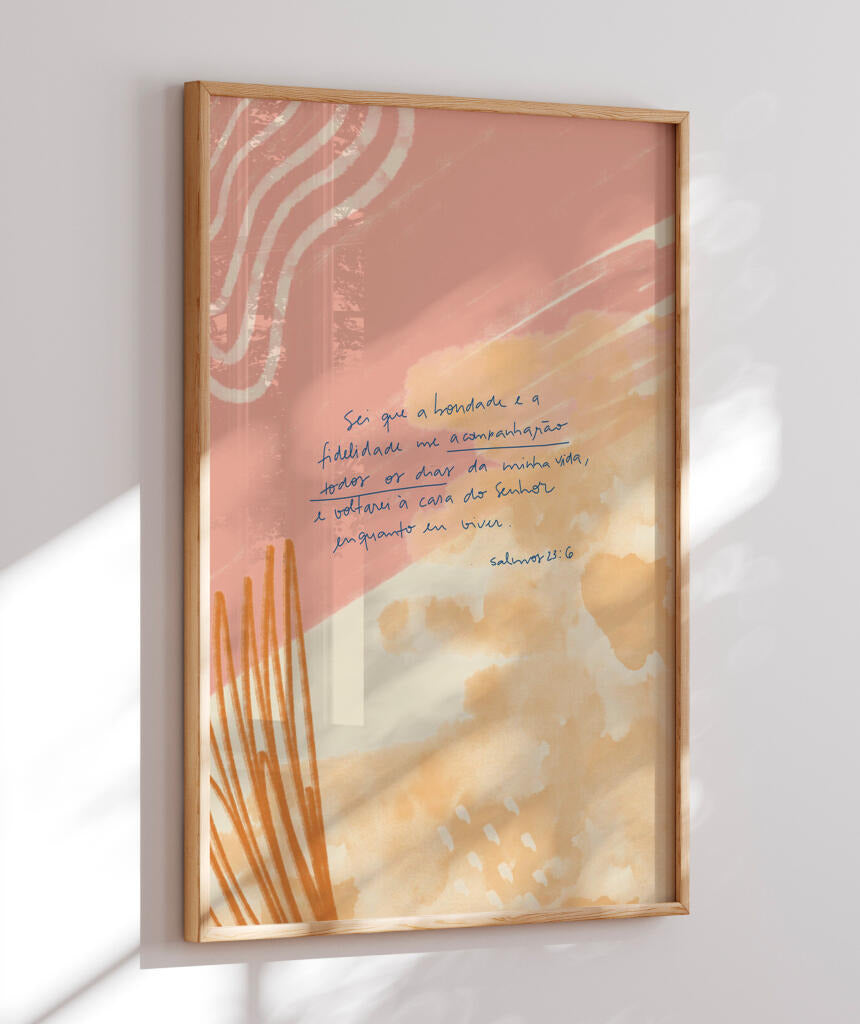 Sei que a bondade e a
fidelidade me acompanharão
todos os dias da minha vida,
e voltarei à casa do Senhor
enquanto eu viver.
Salmos 23:6